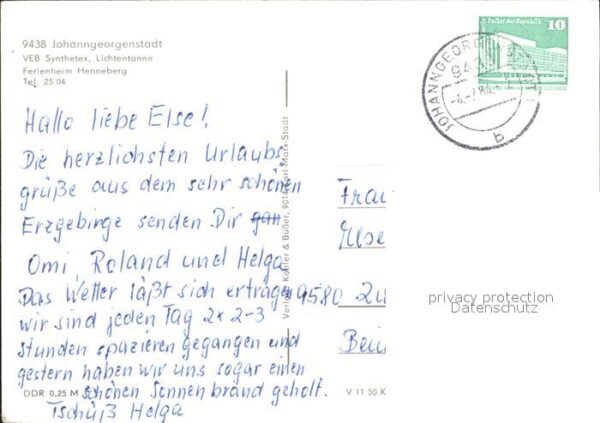 9438 Johanngeorgenstadt
VEB Synthetex, Lichtentanne
Ferienheim Henneberg
Tel. 25 04
Palast der Republik 10
JOHANNGEORG
b
Hallo liebe Else!
Die herzlichsten Urlaubs-
grüße aus dem sehr schönen
Erzgebirge senden Dir gan
Omi, Roland und Helga
Das Wetter läßt sich ertragen
wir sind jeden Tag 2x 2-3
Stunden spazieren gegangen und
gestern haben wir uns sogar einen
schönen Sonnenbrand geholt.
Tschüß Helga
Frau
9580 Zw
privacy protection
Datenschutz
DDR 0,25 M
V 11 50 K